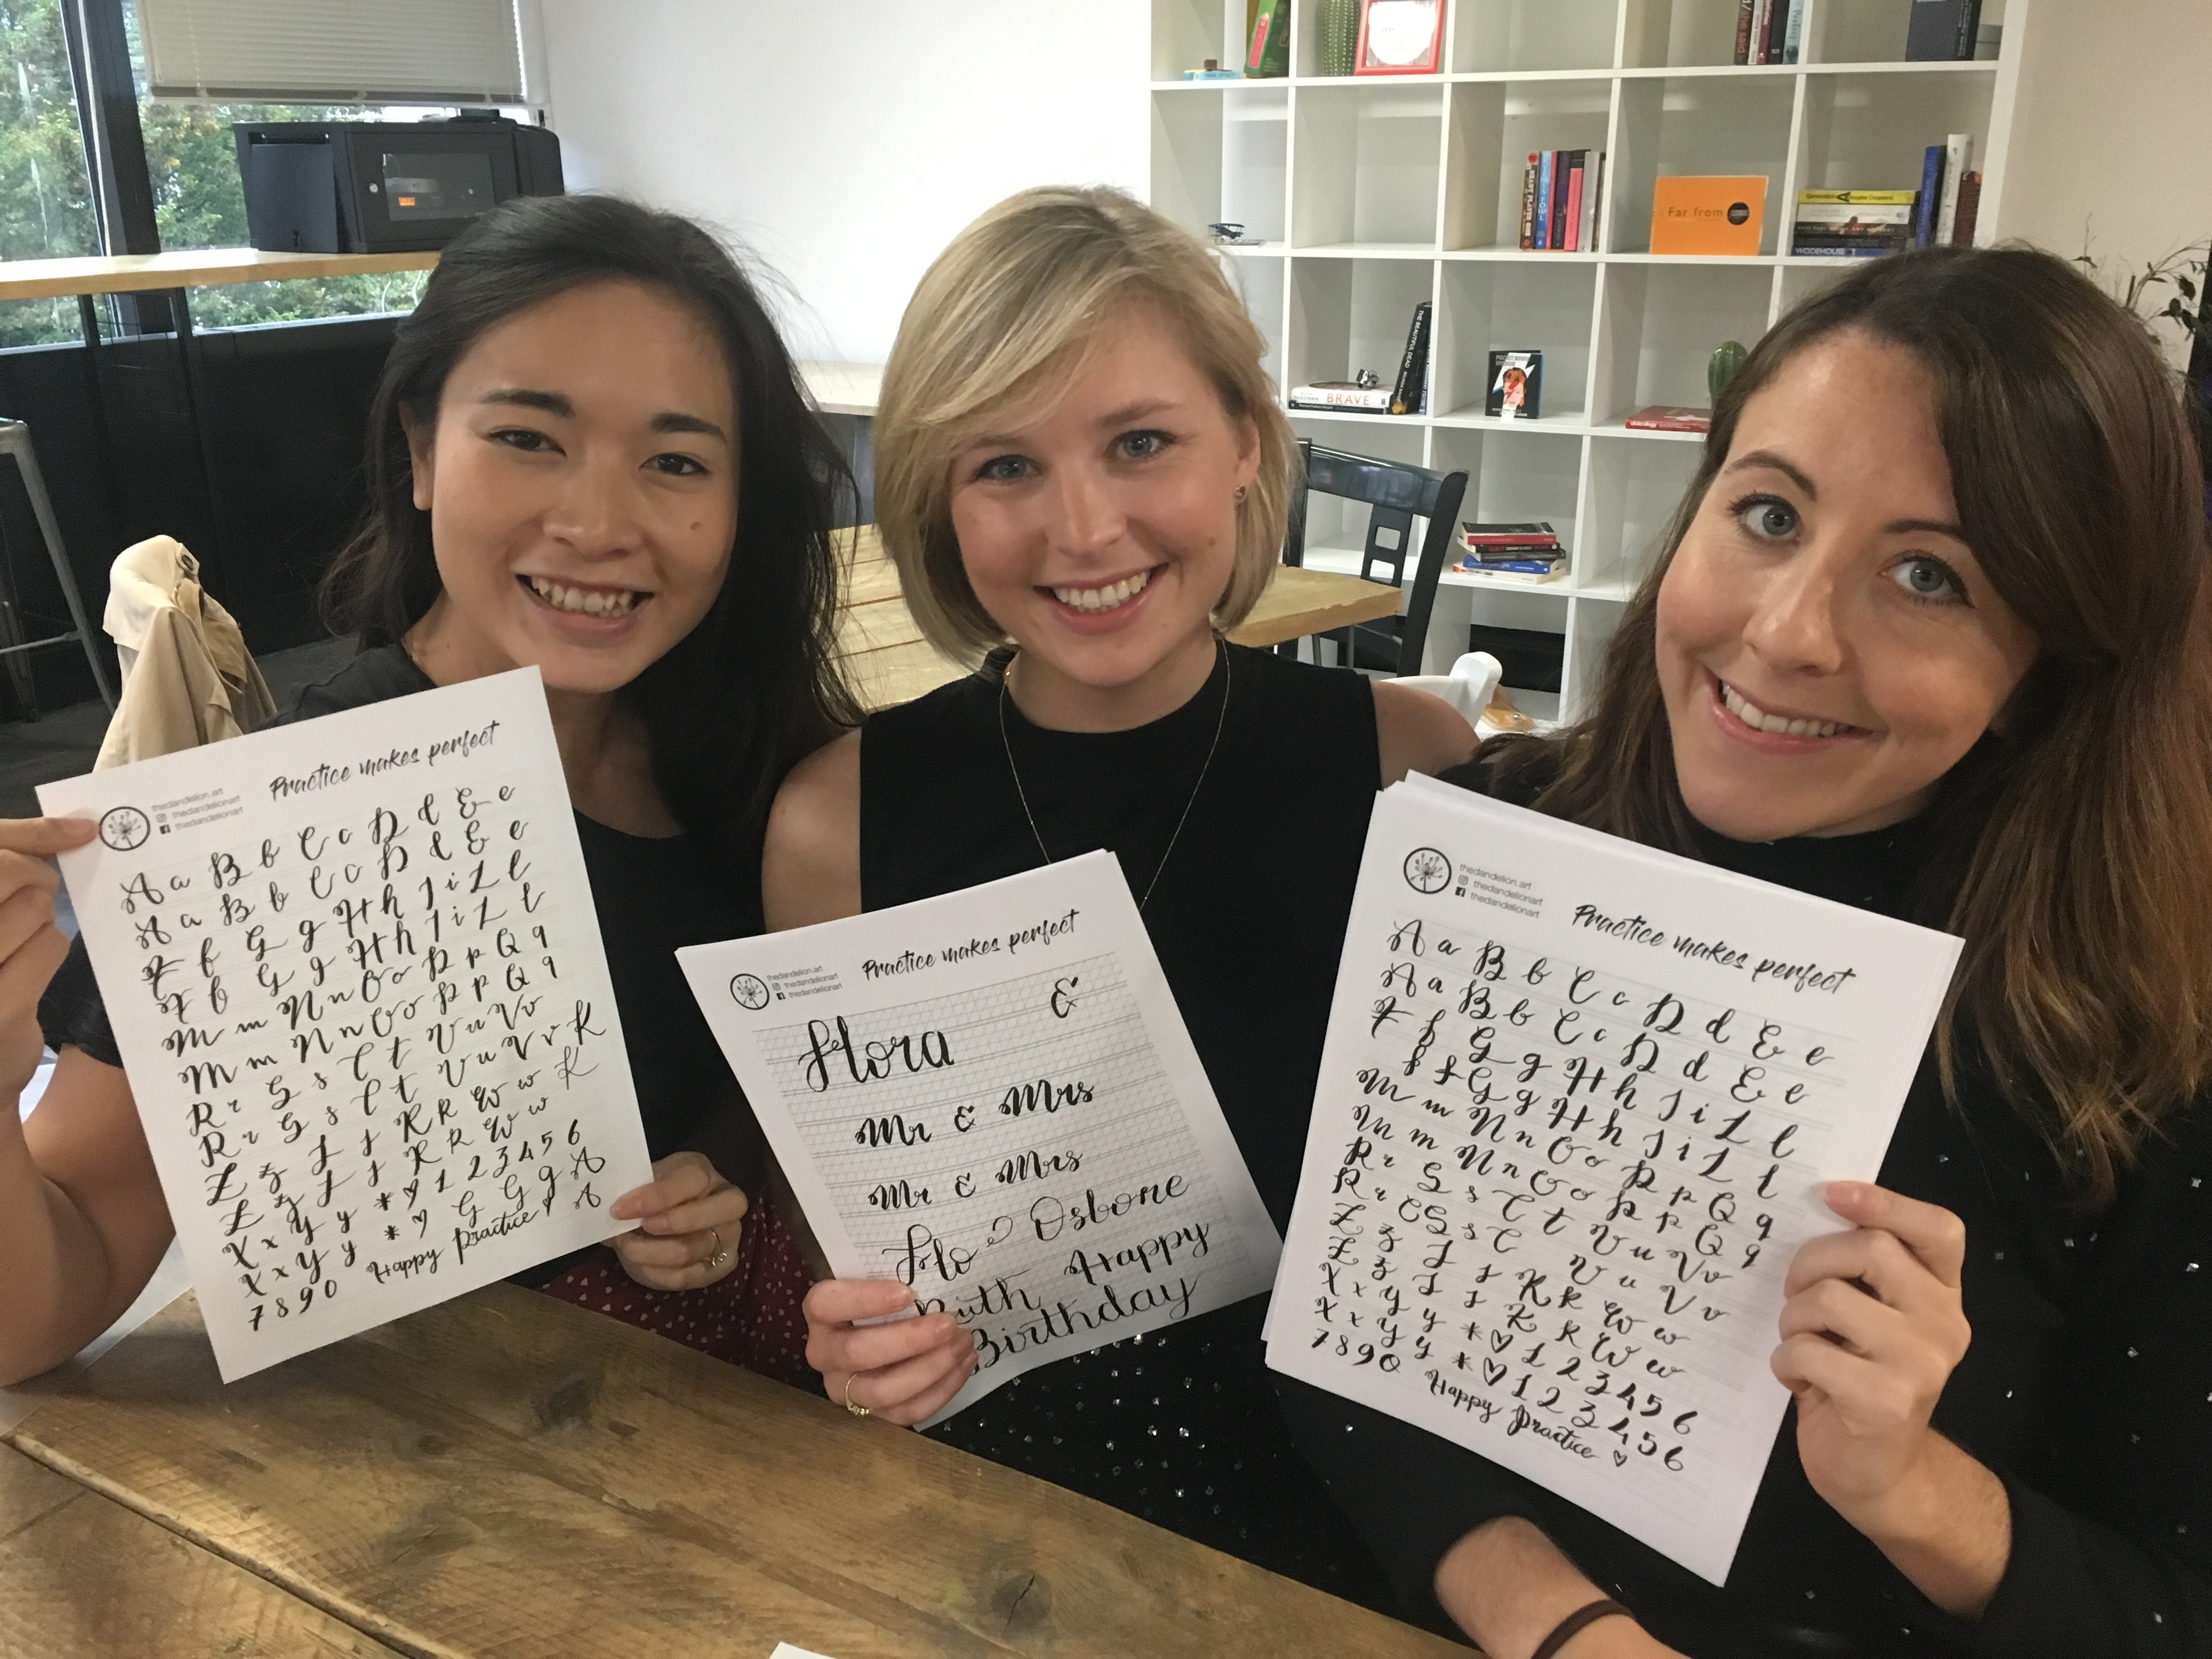 Practice makes perfect
thedandelion.art
thedandelionart
thedandelionart
A a B b C c D d E e
A a B b C c D d E e
F f G g H h I i L l
F f G g H h I i L l
M m N n O o P p Q q
M m N n O o P p Q q
R r S s T t U u V v
R r S s T t U u V v K
Z z J j K k W w K
Z z J j K k W w
X x Y y * ♡ 1 2 3 4 5 6
X x Y y * ♡ G G g A
7 8 9 0 Happy Practice ♡ A
Practice makes perfect
thedandelion.art
thedandelionart
thedandelionart
Flora &
Mr & Mrs
Mr & Mrs
Flo Osbone
Ruth Happy
Birthday
Practice makes perfect
thedandelion.art
thedandelionart
thedandelionart
A a B b C c D d E e
A a B b C c D d E e
F f G g H h I i L l
f f G g H h I i L l
M m N n O o P p Q q
M m N n O o P p Q q
R r S s T t U u V v
R r S s T U u V v
Z z J j K k W w
Z z J j K k W w
X x Y y * ♡ 1 2 3 4 5 6
X x Y y * ♡ 1 2 3 4 5 6
7 8 9 0 Happy Practice ♡
Far from
BRAVE
THE BEAUTIFUL DEAD
WODEHOUSE